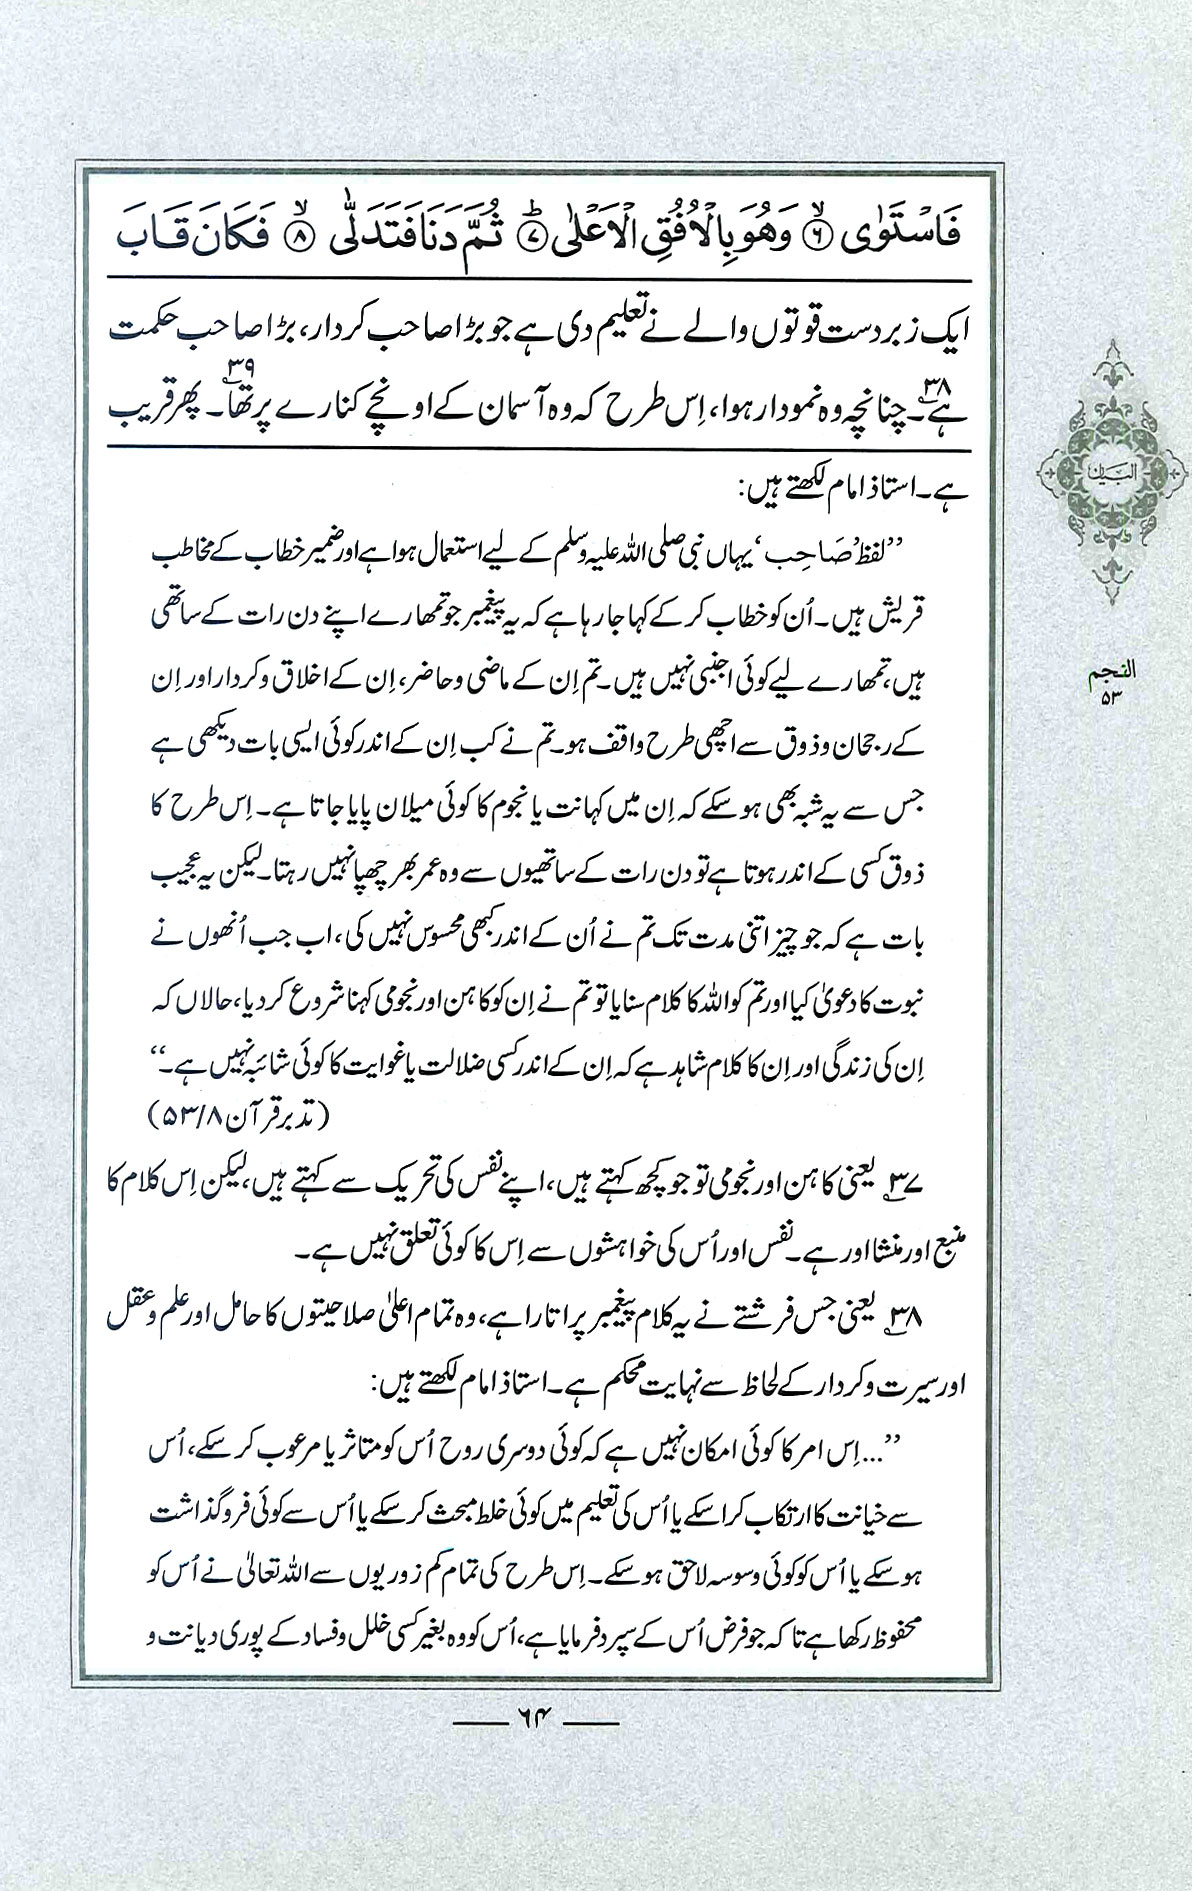 فَاسْتَوٰی ﴿۶﴾ وَهُوَ بِالْاُفُقِ الْاَعْلٰی ﴿۷﴾ ثُمَّ دَنَا فَتَدَلّٰی ﴿۸﴾ فَكَانَ قَابَ
ایک زبردست قوتوں والے نے تعلیم دی ہے جو بڑا صاحب کردار، بڑا صاحب حکمت
ہے۔۳۸ چنانچہ وہ نمودار ہوا، اِس طرح کہ وہ آسمان کے اونچے کنارے پر تھا۔۳۹ پھر قریب
ہے۔ استاذ امام لکھتے ہیں:
’’لفظ ’صَاحِب‘ یہاں نبی صلی اللہ علیہ وسلم کے لیے استعمال ہوا ہے اور ضمیر خطاب کے مخاطب
قریش ہیں۔ اُن کو خطاب کر کے کہا جا رہا ہے کہ یہ پیغمبر جو تمھارے اپنے دن رات کے ساتھی
ہیں، تمھارے لیے کوئی اجنبی نہیں ہیں۔ تم اِن کے ماضی و حاضر، اِن کے اخلاق و کردار اور اِن
کے رجحان و ذوق سے اچھی طرح واقف ہو۔ تم نے کب اِن کے اندر کوئی ایسی بات دیکھی ہے
جس سے یہ شبہ بھی ہو سکے کہ اِن میں کہانت یا نجوم کا کوئی میلان پایا جاتا ہے۔ اِس طرح کا
ذوق کسی کے اندر ہوتا ہے تو دن رات کے ساتھیوں سے وہ عمر بھر چھپا نہیں رہتا۔ لیکن یہ عجیب
بات ہے کہ جو چیز اتنی مدت تک تم نے اُن کے اندر کبھی محسوس نہیں کی، اب جب اُنھوں نے
نبوت کا دعویٰ کیا اور تم کو اللہ کا کلام سنایا تو تم نے اِن کو کاہن اور نجومی کہنا شروع کر دیا، حالاں کہ
اِن کی زندگی اور اِن کا کلام شاہد ہے کہ اِن کے اندر کسی ضلالت یا غوایت کا کوئی شائبہ نہیں ہے۔‘‘
(تدبر قرآن ۵۳/۸)
۳۷ یعنی کاہن اور نجومی تو جو کچھ کہتے ہیں، اپنے نفس کی تحریک سے کہتے ہیں، لیکن اِس کلام کا
منبع اور منشا اور ہے۔ نفس اور اُس کی خواہشوں سے اِس کا کوئی تعلق نہیں ہے۔
۳۸ یعنی جس فرشتے نے یہ کلام پیغمبر پر اتارا ہے، وہ تمام اعلیٰ صلاحیتوں کا حامل اور علم و عقل
اور سیرت و کردار کے لحاظ سے نہایت محکم ہے۔ استاذ امام لکھتے ہیں:
’’...اِس امر کا کوئی امکان نہیں ہے کہ کوئی دوسری روح اُس کو متاثر یا مرعوب کر سکے، اُس
سے خیانت کا ارتکاب کرا سکے یا اُس کی تعلیم میں کوئی خلط مبحث کر سکے یا اُس سے کوئی فروگذاشت
ہو سکے یا اُس کو کوئی وسوسہ لاحق ہو سکے۔ اِس طرح کی تمام کم زوریوں سے اللہ تعالیٰ نے اُس کو
محفوظ رکھا ہے تاکہ جو فرض اُس کے سپرد فرمایا ہے، اُس کو وہ بغیر کسی خلل و فساد کے پوری دیانت و
البیان
النجم
۵۳
۶۴